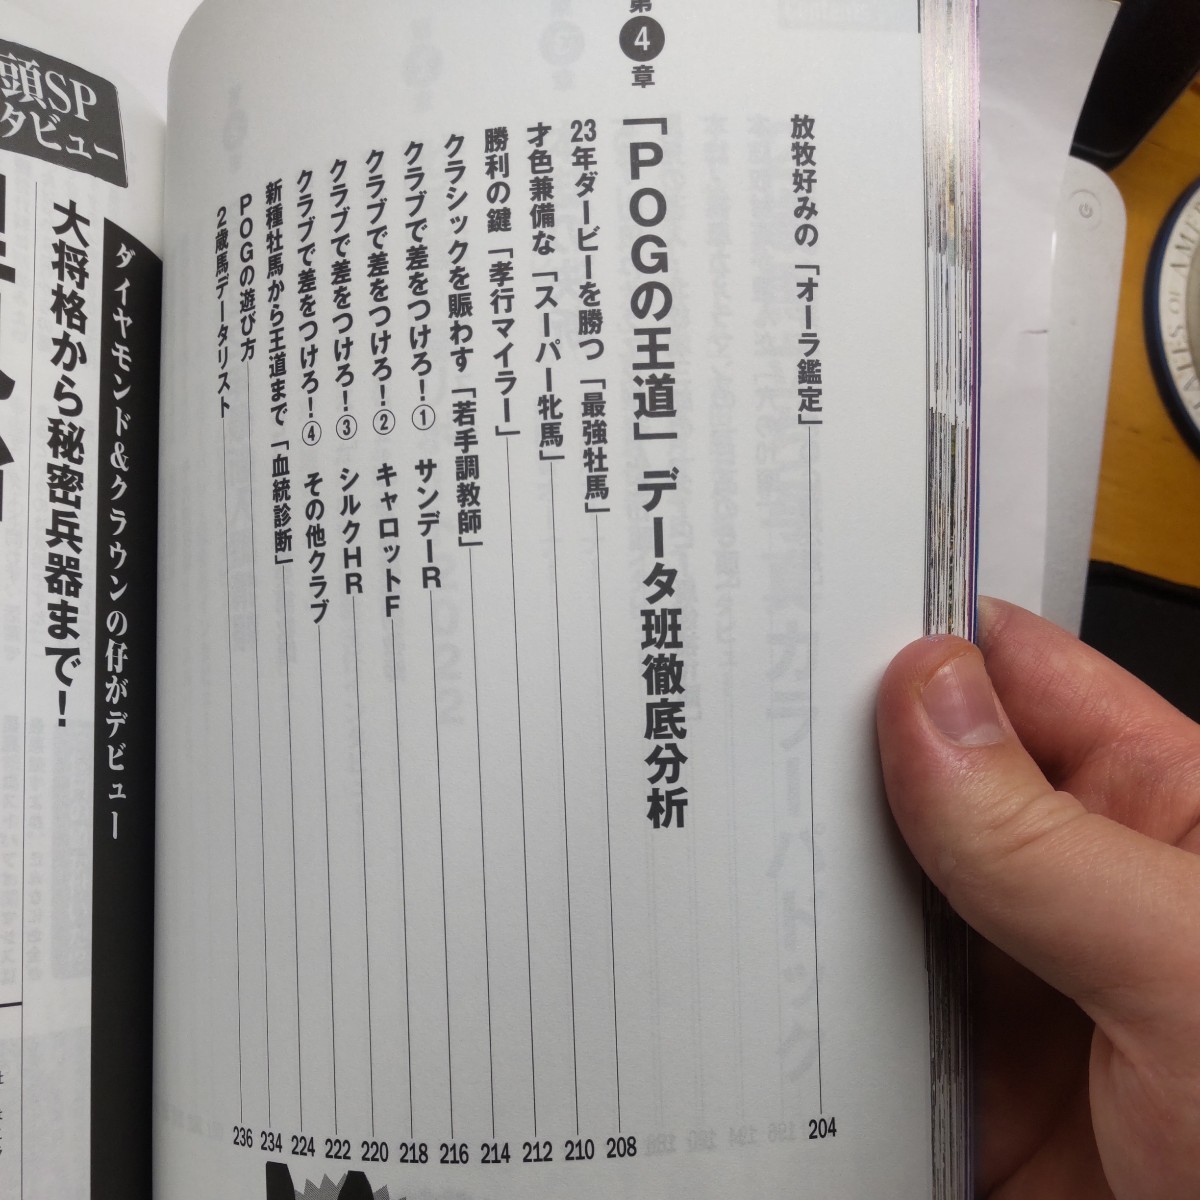 放牧好みの「オーラ鑑定」 204
第4章
「POGの王道」データ班徹底分析
23年ダービーを勝つ「最強牡馬」 208
才色兼備な「スーパー牝馬」 210
勝利の鍵「孝行マイラー」 212
クラシックを賑わす「若手調教師」 214
クラブで差をつけろ!① サンデーR 216
クラブで差をつけろ!② キャロットF 218
クラブで差をつけろ!③ シルクHR 220
クラブで差をつけろ!④ その他クラブ 222
新種牡馬から王道まで「血統診断」 224
POGの遊び方 234
2歳馬データリスト 236
頭SP
タビュー
ダイヤモンド&クラウンの仔がデビュー
大将格から秘密兵器まで!